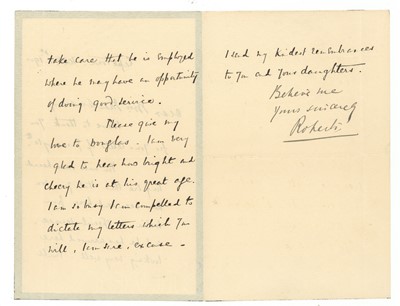 take care that he is employed
where he may have an opportunity
of doing good service.
Please give my
love to Douglas. I am very
glad to hear how bright and
cheery he is at his great age.
I am so busy I am compelled to
dictate my letters which you
will, I am sure, excuse -
I send my kindest remembrances
to you and your daughters.
Believe me
Yours sincerely
Roberts